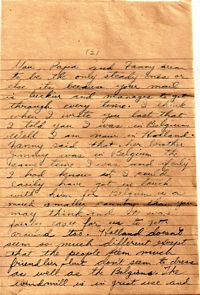 (2)
You Papa and Fanny seem
to be the only steady ones as
far as your mail
is because and manages to get
through every time. I think
when I wrote you last that
I told you I was in Belgium
Well I am now in Holland.
Fanny said that her brother
Jimmy was in Belgium the
same time I was and if only
I had known it I could
easily have got in touch
with him for Belgium is a
much smaller country than you
may think and it was
fairly easy for us to get
around there. Holland doesn't
seem so much different except
that the people seem much
friendlier but don't seem to dress
as well as the Belgians. The
windmill is in great use and